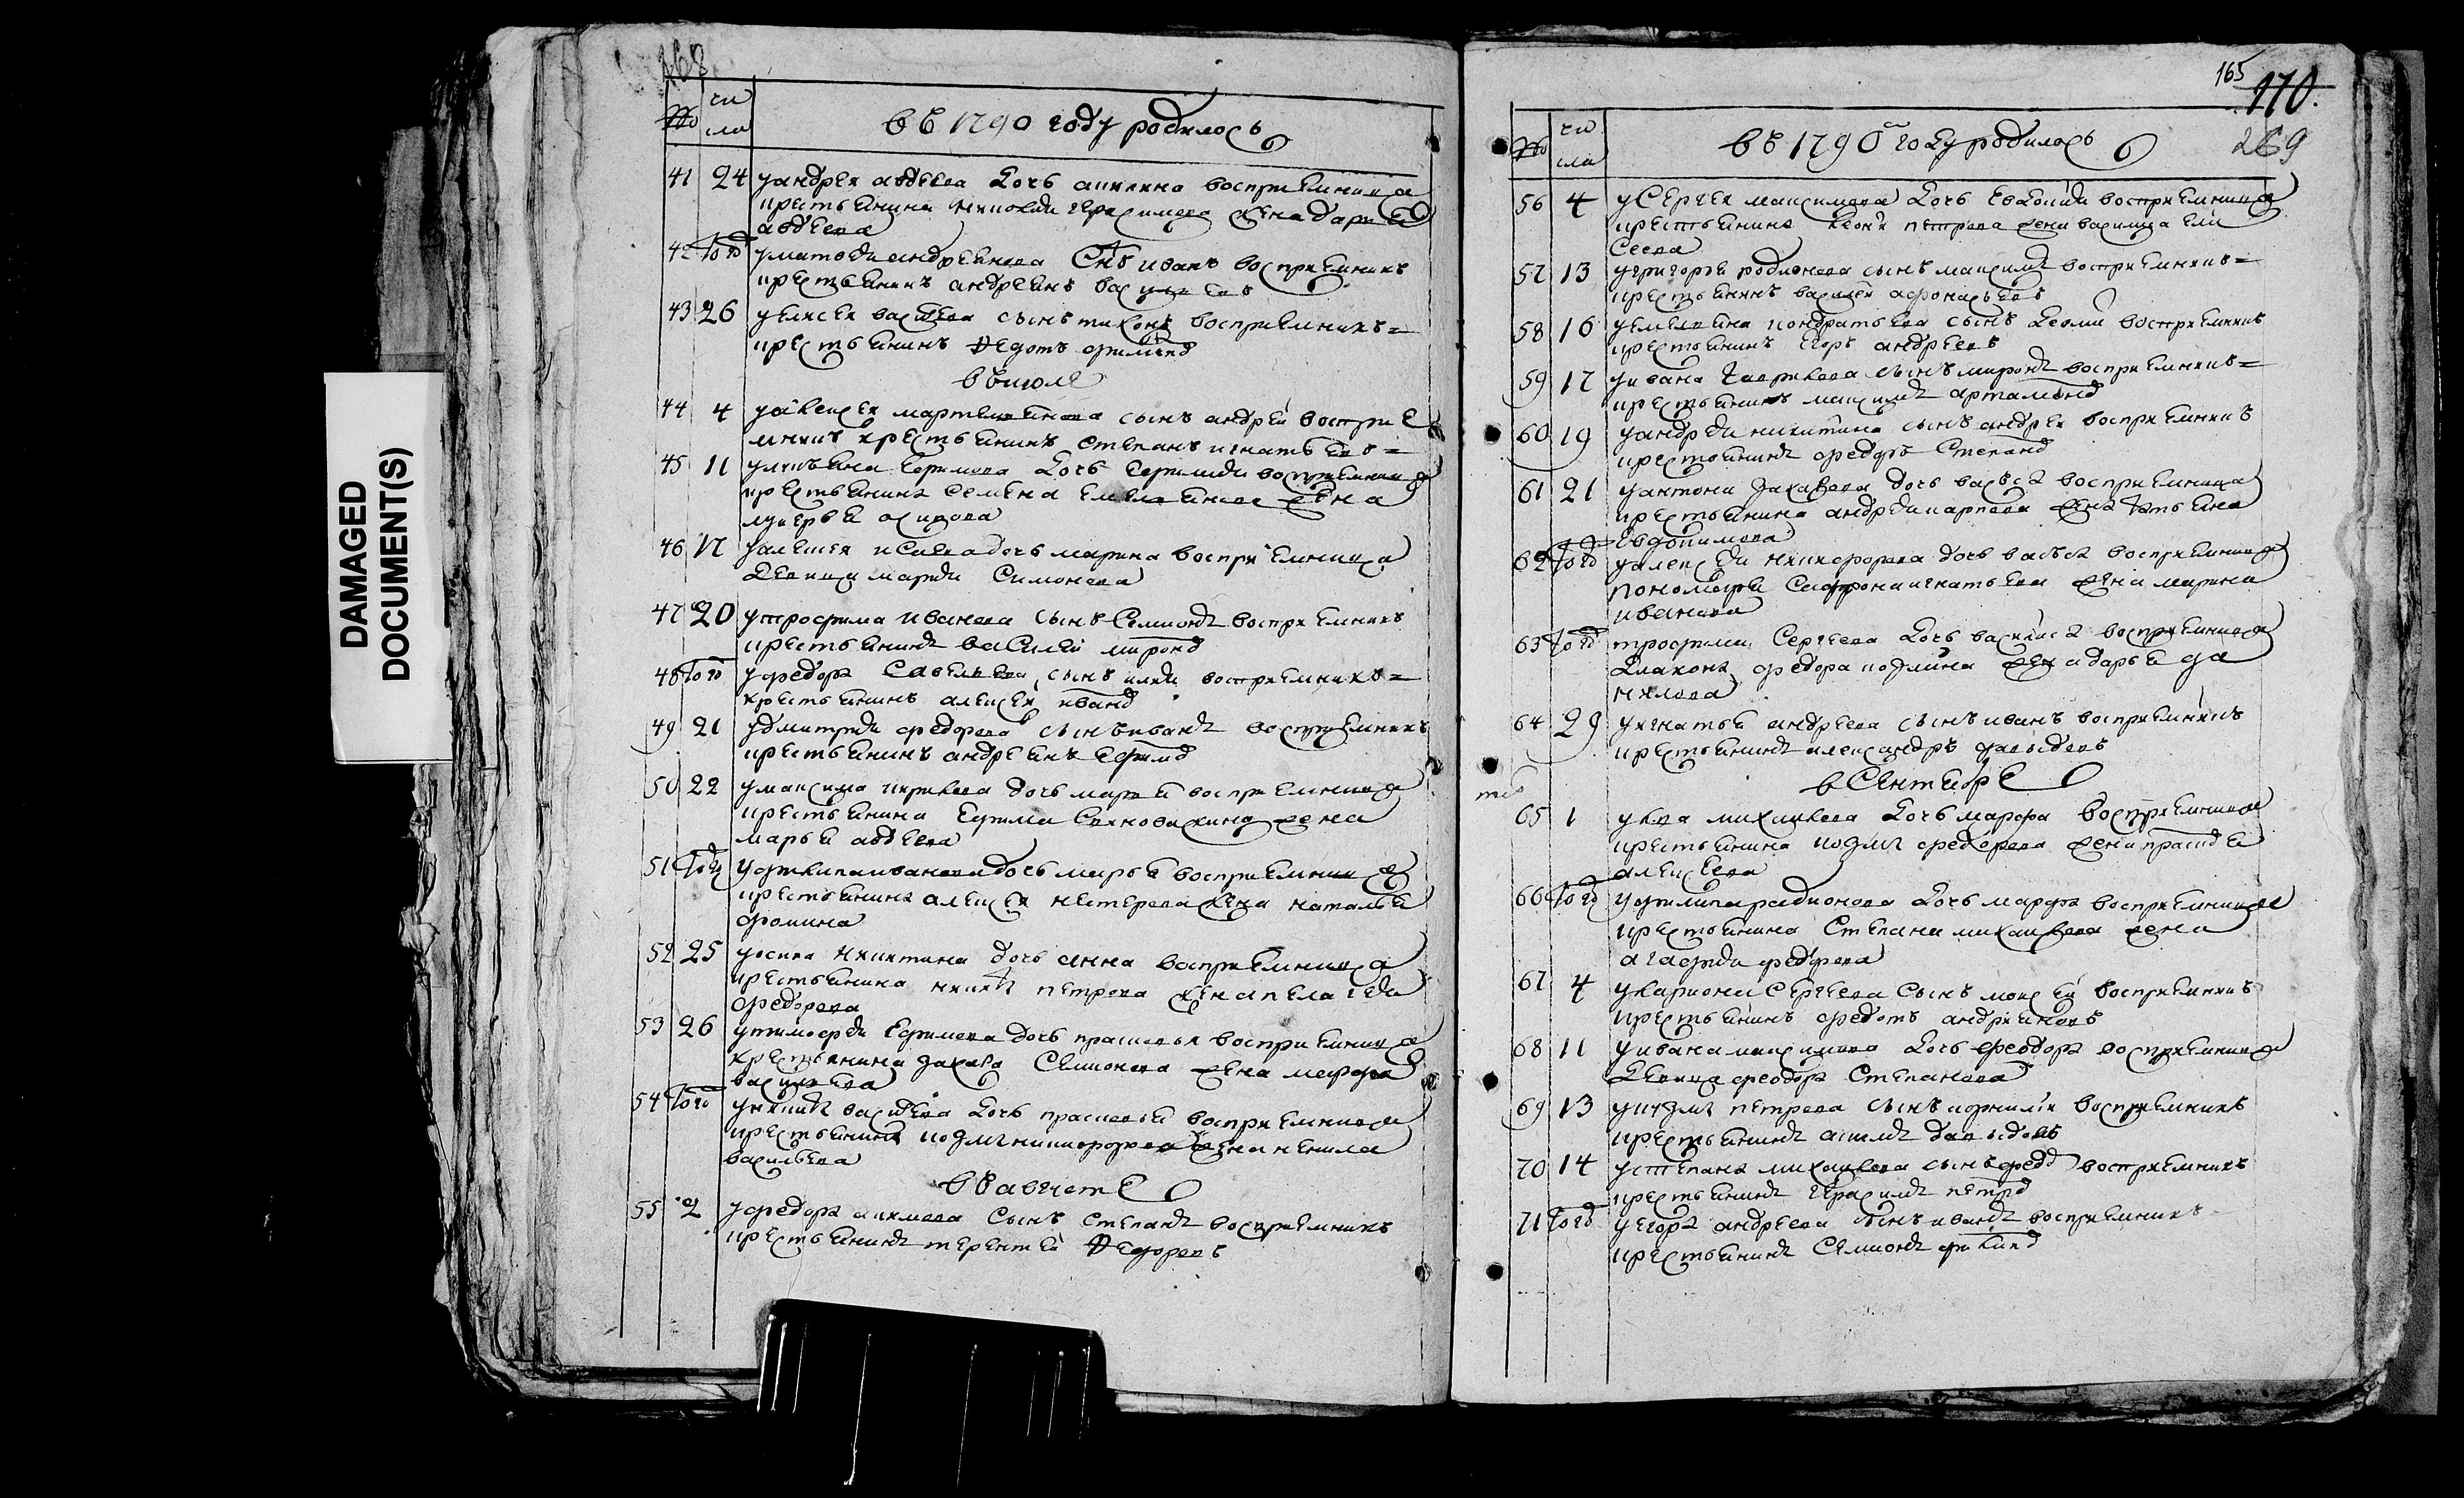 DAMAGED
DOCUMENT(S)
268
№ чи
сла
въ 1790 году родилось
41 24 у андрея авдеева дочь акилина восприемница
крестьянина герасимова жена дарья
авдеева
42 того у матфея андреянова снъ иванъ восприемникъ
крестьянинъ андреянъ васильевъ
43 26 у елисея василева сынъ тихонъ восприемникъ =
крестьянинъ федотъ
въ июле
44 4 у алексея мартемьянова сынъ андрей восприе
мникъ крестьянинъ степанъ игнатьевъ =
45 11 у ефимова дочь восприемница
крестьянина семена емельянова жена
лукерья осипова
46 17 у алексея исаева дочь марина восприемница
девица марья симонова
47 20 у трофима иванова сынъ семионъ восприемникъ
крестьянинъ василей миронов
48 того у федора савельева сынъ илья восприемникъ =
крестьянинъ алексей иванов
49 21 у дмитрия федорова сынъ иванъ восприемникъ
крестьянинъ андреянъ ефимов
50 22 у максима кирилова дочь марья восприемница
крестьянина ефима жена
марья авдеева
51 того у филипа иванова дочь марья восприемница
крестьянина алексея нестерова жена наталья
фомина
52 25 у осипа никитина дочь анна восприемница
крестьянина никиты петрова жена пелагея
федорова
53 26 у тимофея ефимова дочь прасковья восприемница
крестьянина захара семионова жена марфа
васильева
54 того у никиты василева дочь прасковья восприемница
крестьянина козмы никифорова жена ненила
васильева
въ августе
55 2 у федора акимова сынъ степанъ восприемникъ
крестьянинъ терентей федоровъ
165
170.
269
№ чи
сла
въ 1790м году родилось
56 4 у сергея максимова дочь евдокия восприемница
крестьянина петрова жена василиса ели
сеева
57 13 у григорья родионова сынъ максимъ восприемникъ =
крестьянинъ василей афонасьевъ
58 16 у емельяна кондратьева сынъ восприемникъ
крестьянинъ егоръ андреевъ
59 17 у ивана гаврилова сынъ миронъ восприемникъ =
крестьянинъ максимъ артамонов
60 19 у андрея никитина сынъ андрей восприемникъ
крестьянинъ федоръ степанов
61 21 у антона захарова дочь васса восприемница
крестьянина андрея карпова жена татьяна
евдокимова
62 того у алексея никифорова дочь васса восприемница
пономаря сафрона игнатьева жена марина
иванова
63 того трофима сергеева дочь василиса восприемница
диакона федора козмина жена дарья да
нилова
64 29 у игнатья андреева сынъ иванъ восприемникъ
крестьянинъ александръ давыдовъ
в сентябре
65 1 у михаилова дочь марфа восприемница
крестьянина козмы федорова жена прасковья
алексеева
66 того у филипа радионова дочь марфа восприемница
крестьянина степана михаилова жена
агафья федорова
67 4 у лариона сергеева сынъ моисей восприемникъ
крестьянинъ федотъ андреяновъ
68 11 у ивана максимова дочь феодора восприемница
девица феодора степанова
69 13 у кузмы петрова сынъ корнилий восприемникъ
крестьянинъ акимъ давыдовъ
70 14 у степана михаилова сынъ федор восприемникъ
крестьянинъ герасимъ петров
71 того у егора андреева сынъ иванъ восприемникъ
крестьянинъ семионъ филипов